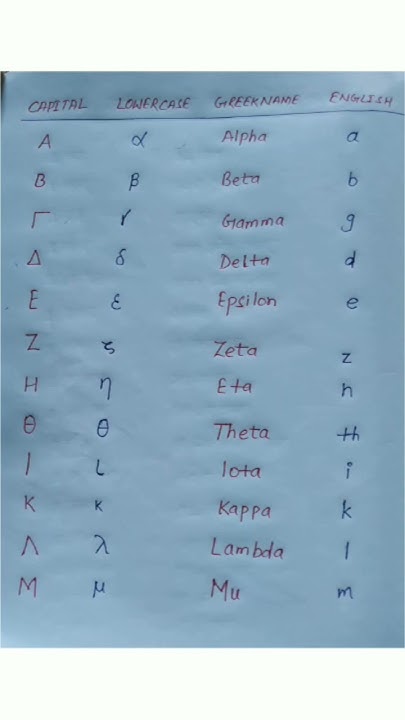 CAPITAL LOWERCASE GREEKNAME ENGLISH
Α α Alpha a
Β β Beta b
Γ γ Gamma g
Δ δ Delta d
Ε ε Epsilon e
Ζ ζ Zeta z
Η η Eta h
Θ θ Theta th
Ι ι Iota i
Κ κ Kappa k
Λ λ Lambda l
Μ μ Mu m